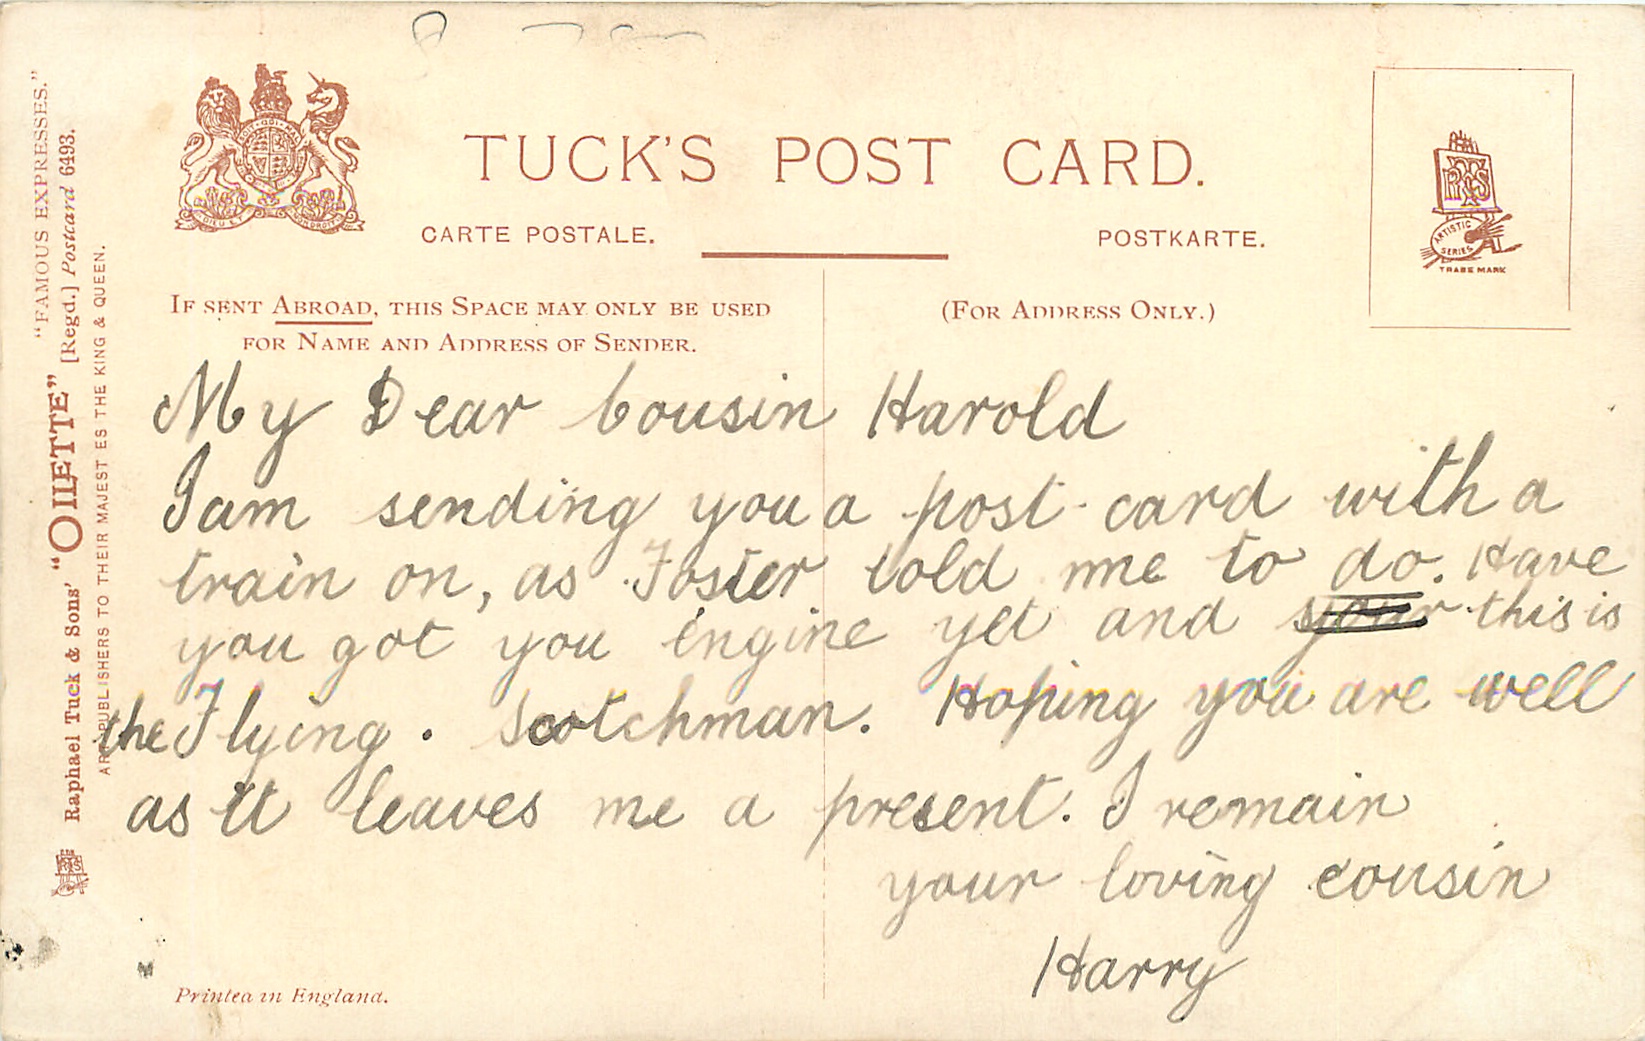 TUCK'S POST CARD.
CARTE POSTALE. POSTKARTE.
IF SENT ABROAD, THIS SPACE MAY ONLY BE USED
FOR NAME AND ADDRESS OF SENDER.
(FOR ADDRESS ONLY.)
ARTISTIC
SERIES
TRADE MARK
"FAMOUS EXPRESSES."
Raphael Tuck & Sons' "OILETTE" [Regd.] Postcard 6493.
ART PUBLISHERS TO THEIR MAJESTIES THE KING & QUEEN.
My Dear Cousin Harold
I am sending you a post-card with a
train on, as Foster told me to do. Have
you got you engine yet and your this is
the Flying. Scotchman. Hoping you are well
as it leaves me a present. I remain
your loving cousin
Harry
Printed in England.